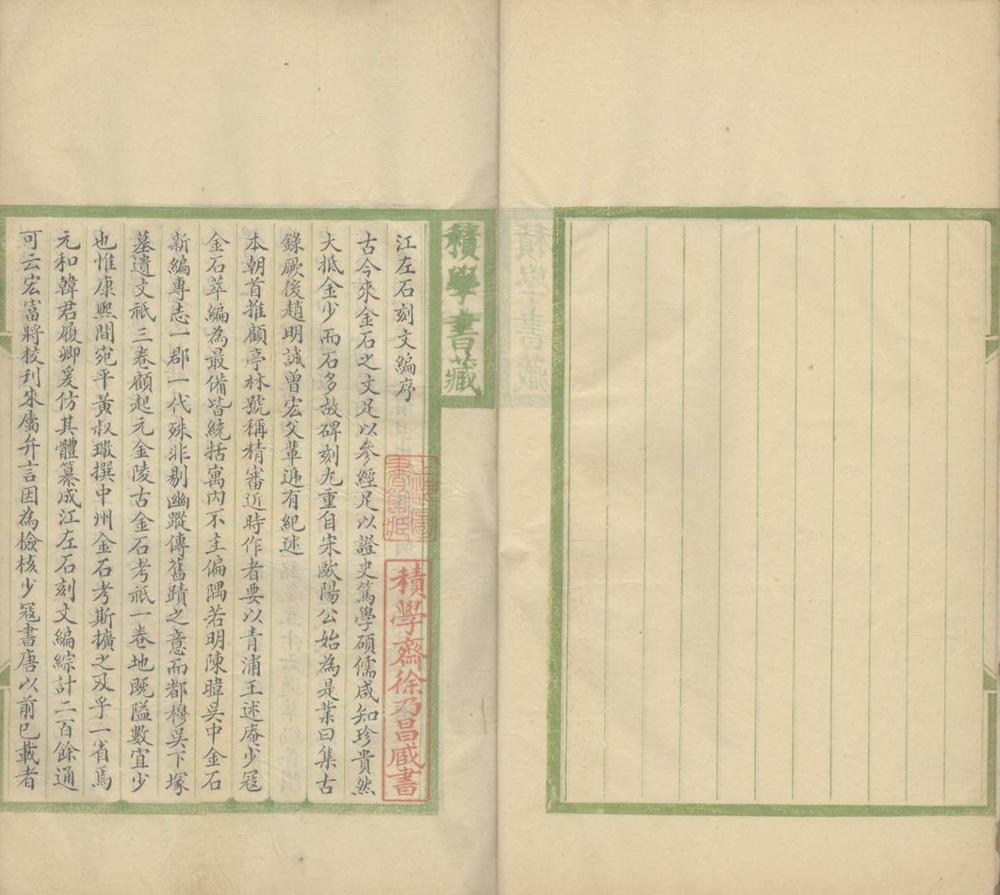 積學書藏
江左石刻文編序
古今來金石之文足以參經足以證史篤學碩儒咸知珍貴然
大抵金少而石多故碑刻尤重自宋歐陽公始為是業曰集古
錄厥後趙明誠曾宏父輩遞有紀述
本朝首推顧亭林號稱精審近時作者要以青浦王述庵少寇
金石萃編為最備皆統括寓內不主偏隅若明陳暐吳中金石
新編專志一郡一代殊非剔幽蹤傳舊蹟之意而都穆吳下塚
墓遺文祇三卷顧起元金陵古金石考祇一卷地既隘數宜少
也惟康熙間宛平黃叔璥撰中州金石考斯擴之及乎一省焉
元和韓君履卿爰仿其體纂成江左石刻文編綜計二百餘通
可云宏富將授刊來屬弁言因為檢核少寇書唐以前已載者
上海圖書館藏
積學齋徐乃昌藏書